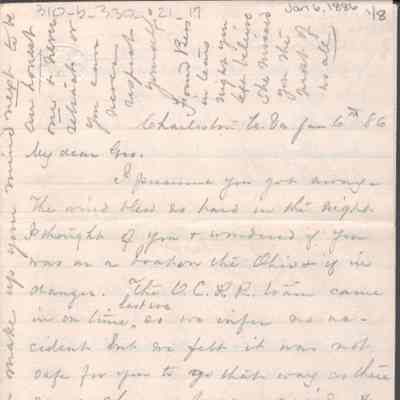 310-b-330a-21-17
Jan 6, 1886
1/8
make up your mind next to be
an honest
one & never
detract or
you can
never
respect
yourself
Found Bess
in tears
night you
left believe
she missed
you the
most of
us all
Charleston W. Va Jan 6th 86
My dear Geo.
I presume you got away.
The wind blew so hard in the night
I thought of you & wondered if you
was on a boat on the Ohio & if in
danger. The O.C.R.R. train came
last eve
in on time, so we infer no ac-
cident but we felt it was not
safe for you to go that way as there